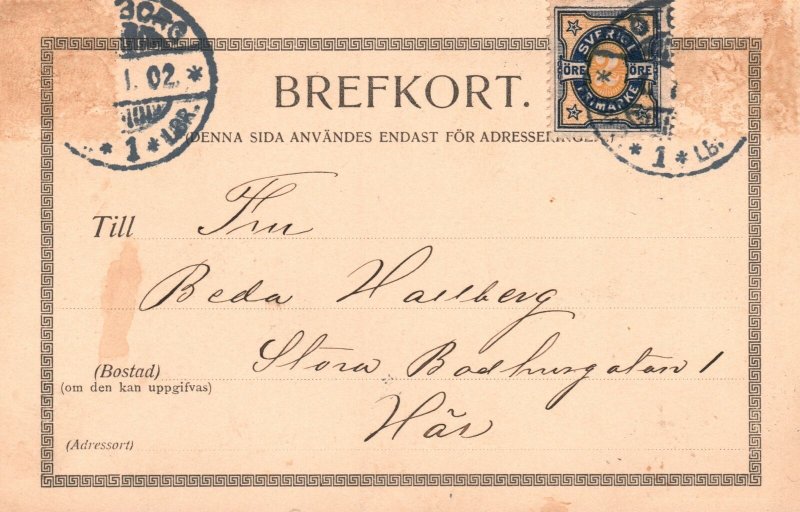 BORG
1. 02. *
* 1 * LBR.
SVERIGE
ÖRE 2 ÖRE
FRIMÄRKE
* 1 * LBR.
BREFKORT.
(DENNA SIDA ANVÄNDES ENDAST FÖR ADRESSERINGEN
Till Fru
Beda Hallberg
(Bostad) Stora Badhusgatan 1
(om den kan uppgifvas)
Här
(Adressort)